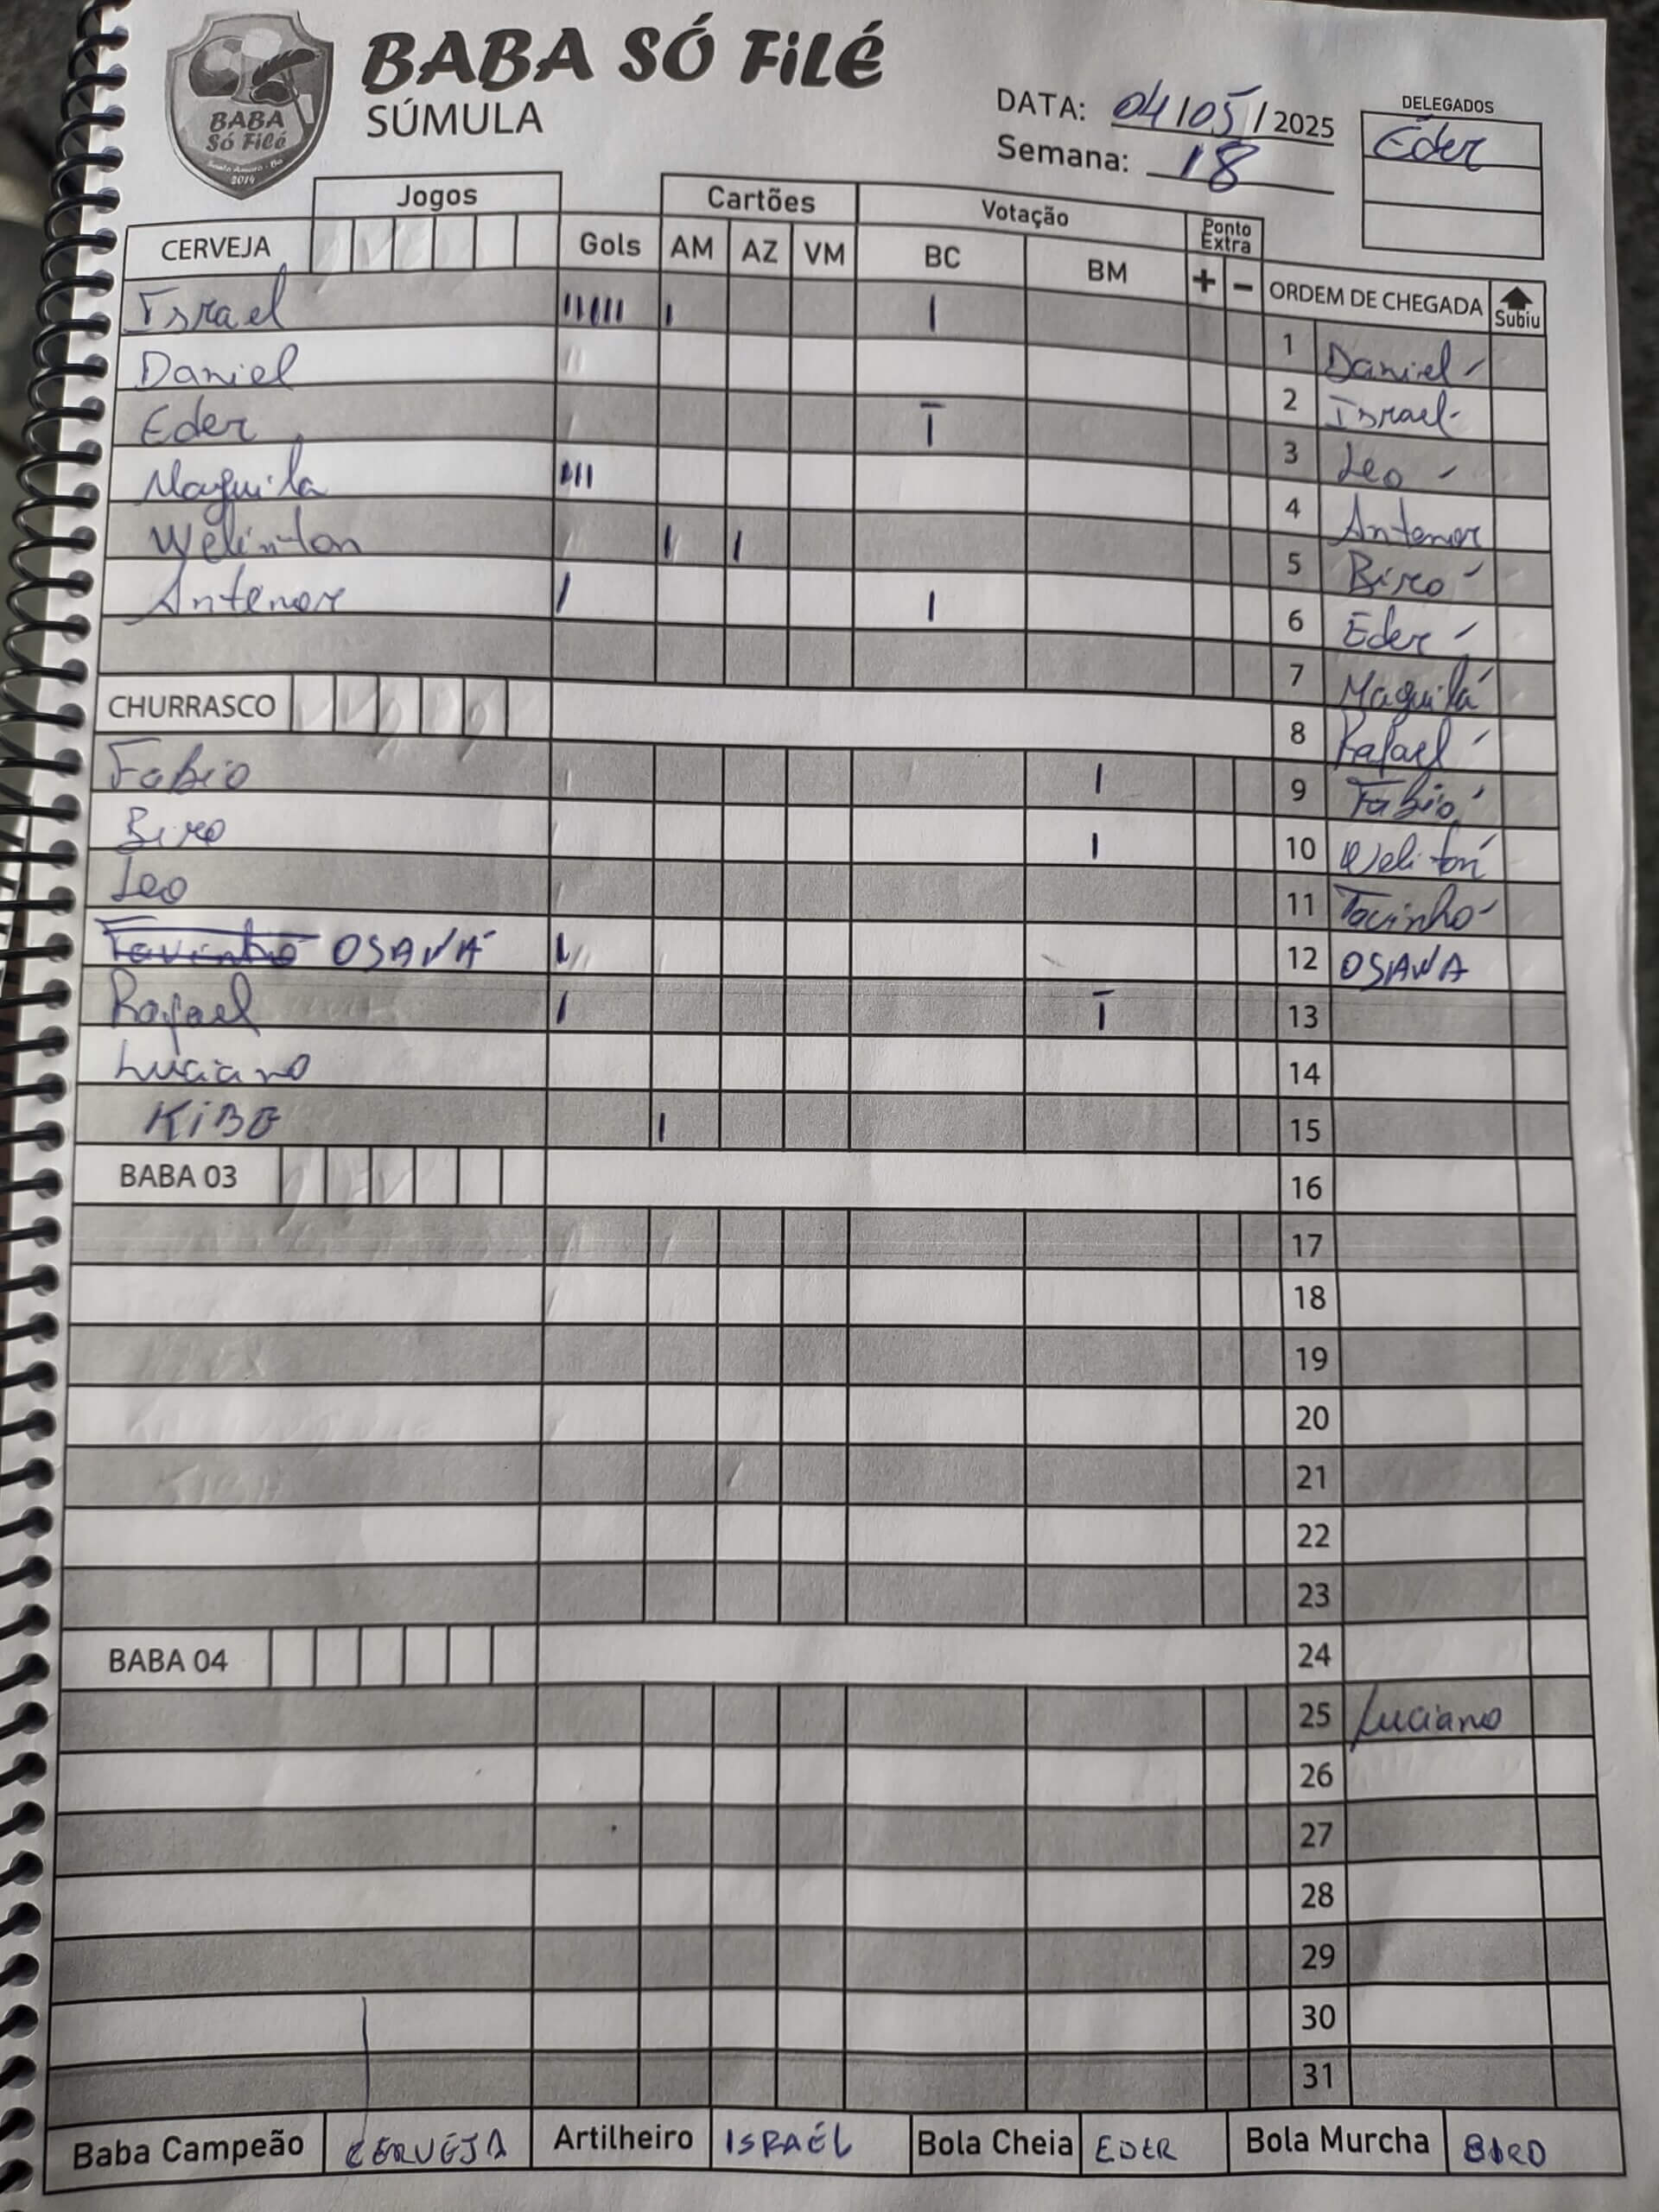 BABA SÓ FiLÉ
SÚMULA
BABA
Só Filé
Santo Amaro - Ba
2014
DATA: 04/05/2025
Semana: 18
DELEGADOS
Éder
Jogos
Cartões
Votação
Ponto Extra
CERVEJA
Gols AM AZ VM BC BM + -
ORDEM DE CHEGADA Subiu
Israel IIIIII I I
Daniel
Eder T
Maguila IIII
Welinton I I
Antenor I I
CHURRASCO
Fabio I
Biro I
Leo
Tavinho OSAWA I
Rafael I T
Luciano
KIBE I
BABA 03
BABA 04
1 Daniel
2 Israel
3 Leo
4 Antenor
5 Biro
6 Eder
7 Maguila
8 Rafael
9 Fabio
10 Weliton
11 Tavinho
12 OSAWA
13
14
15
16
17
18
19
20
21
22
23
24
25 Luciano
26
27
28
29
30
31
Baba Campeão CERVEJA Artilheiro ISRAÉL Bola Cheia EDER Bola Murcha BIRO